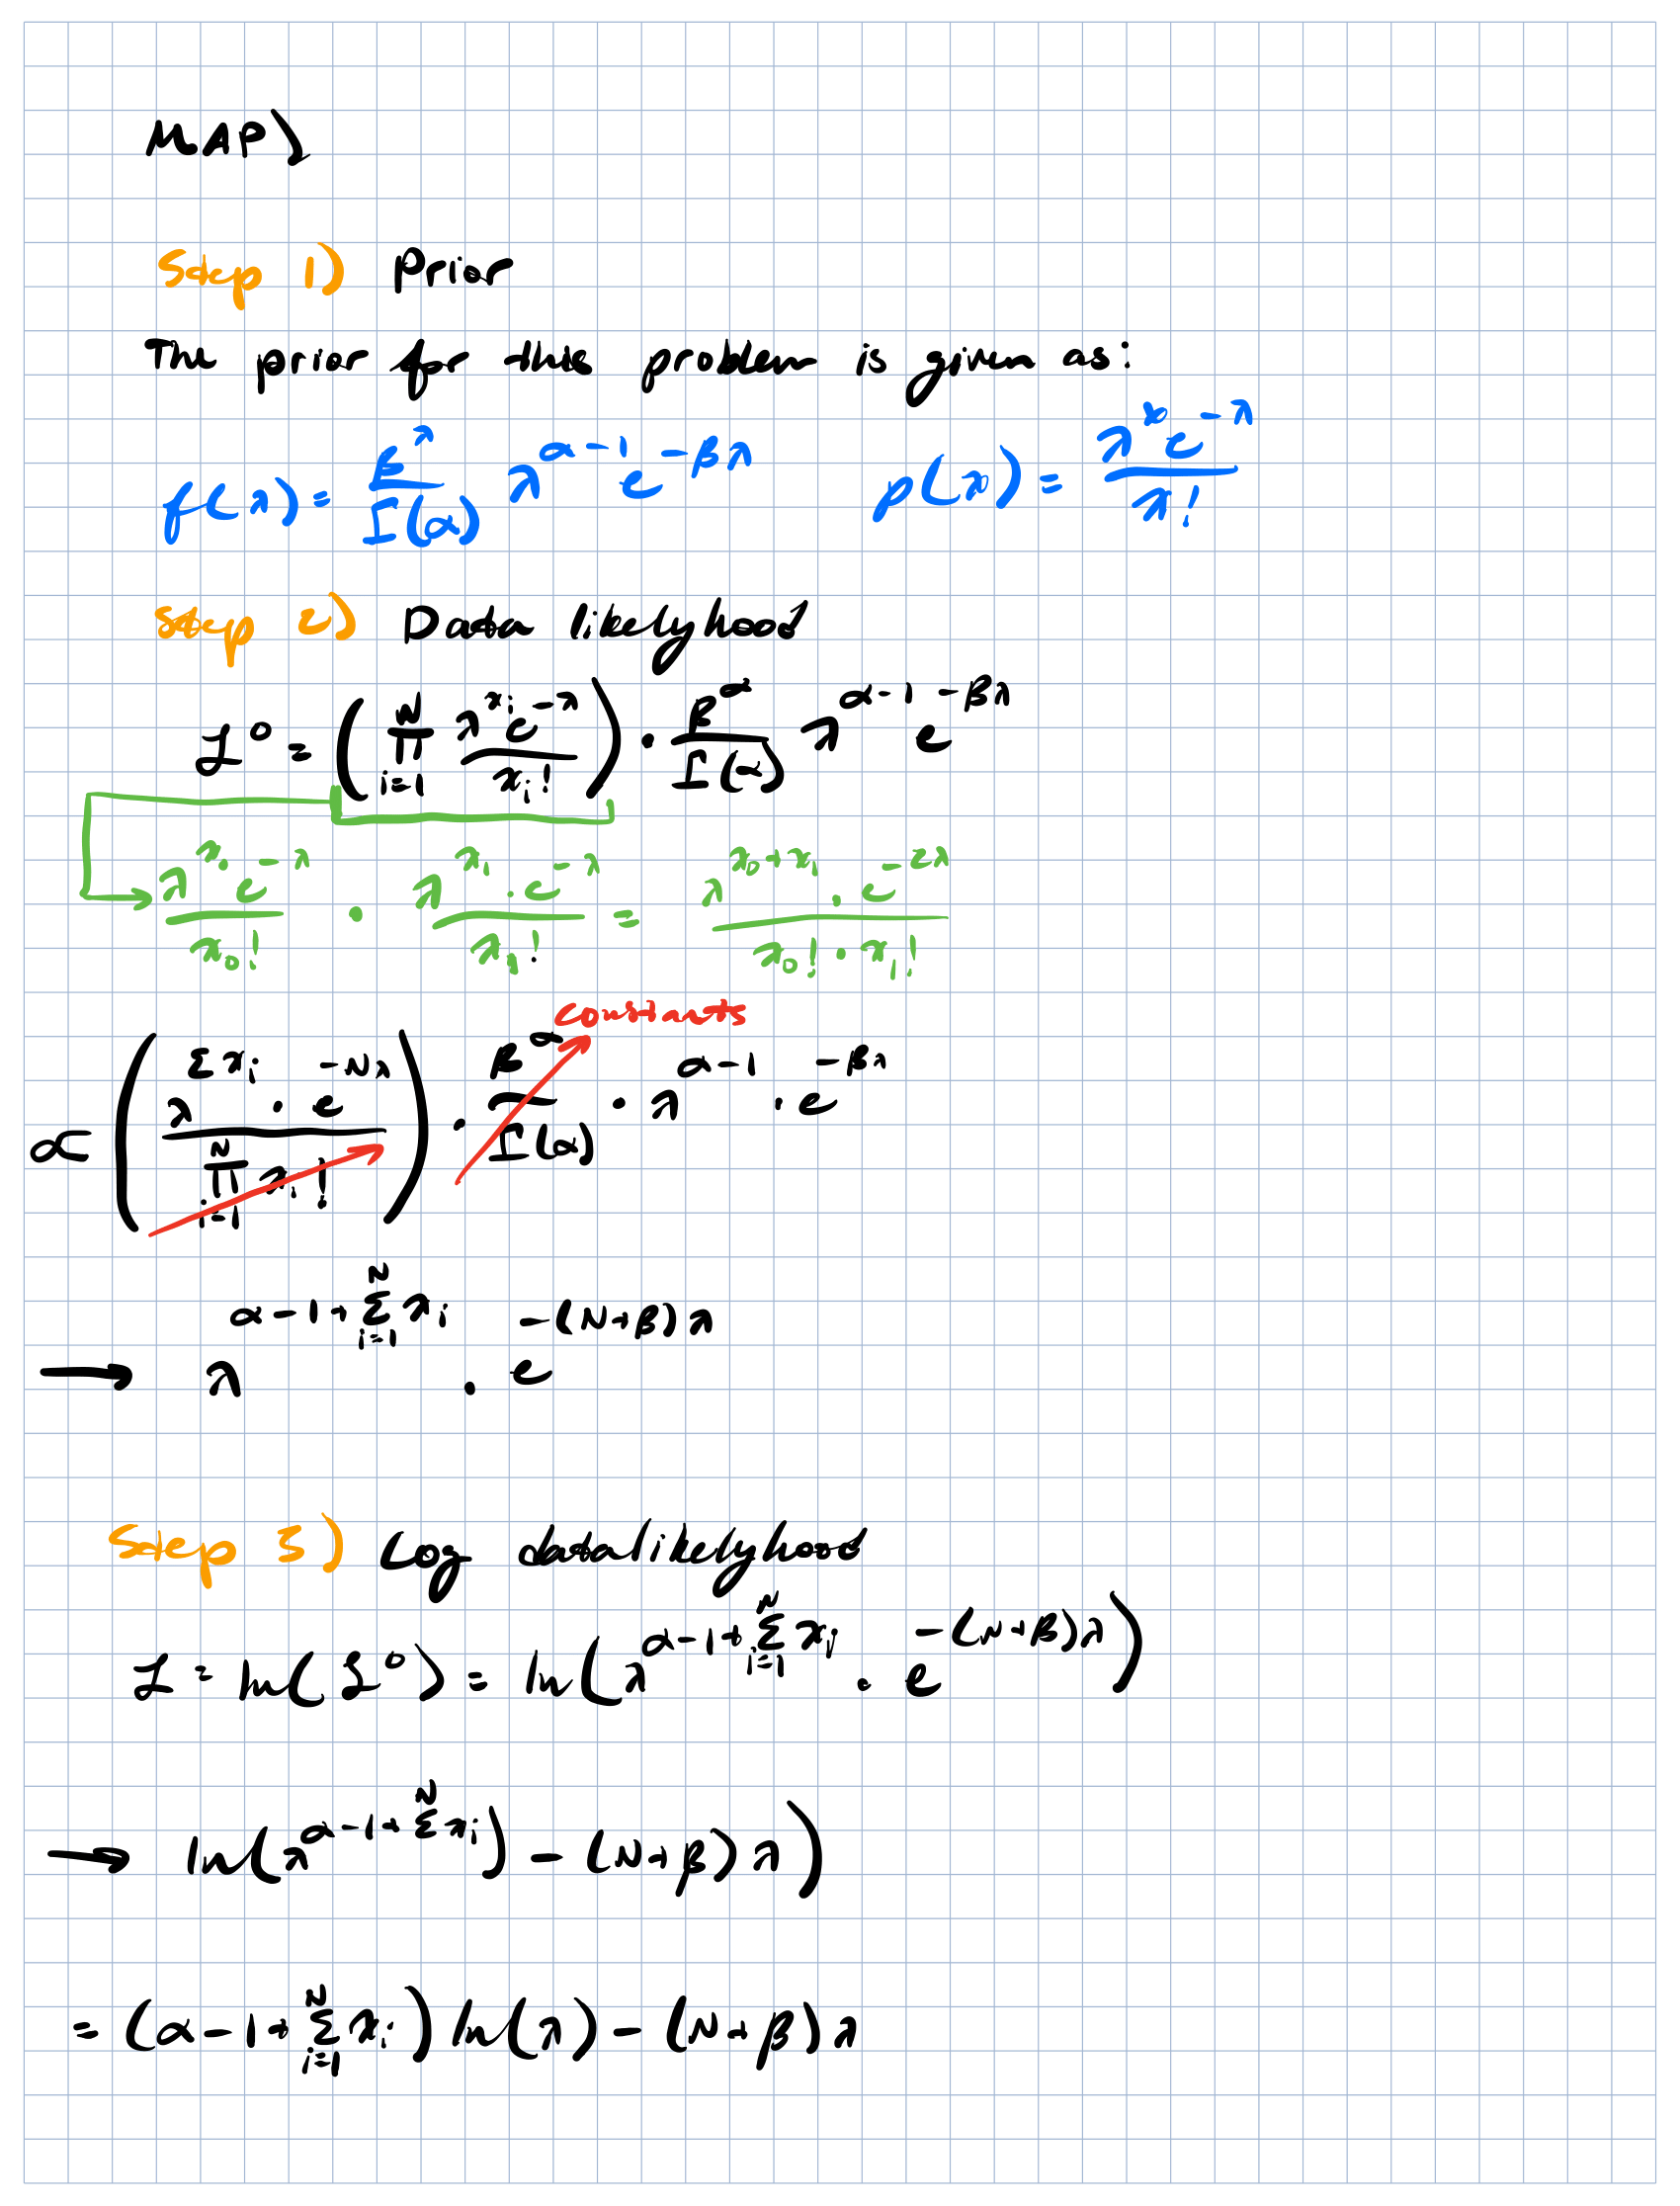 MAP)
Step 1) Prior
The prior for this problem is given as:
f(λ) = β^λ / Γ(α) λ^(α-1) e^(-βλ)    p(x) = λ^x e^(-λ) / x!
Step 2) Data likelyhood
ℒ° = ( ∏_{i=1}^{N} λ^(x_i) e^(-λ) / x_i! ) · β^α / Γ(α) λ^(α-1) e^(-βλ)
λ^(x_0) e^(-λ) / x_0! · λ^(x_1) · e^(-λ) / x_1! = λ^(x_0+x_1) · e^(-2λ) / x_0! · x_1!
constants
∝ ( λ^(Σx_i) · e^(-Nλ) / ∏_{i=1}^{N} x_i! ) · β^α / Γ(α) · λ^(α-1) · e^(-βλ)
→ λ^(α-1+Σ_{i=1}^{N} x_i) · e^(-(N+β)λ)
Step 3) Log datalikelyhood
ℒ = ln(ℒ°) = ln(λ^(α-1+Σ_{i=1}^{N} x_i) · e^(-(N+β)λ))
→ ln(λ^(α-1+Σ^N x_i)) - (N+β)λ)
= (α-1+Σ_{i=1}^{N} x_i) ln(λ) - (N+β)λ